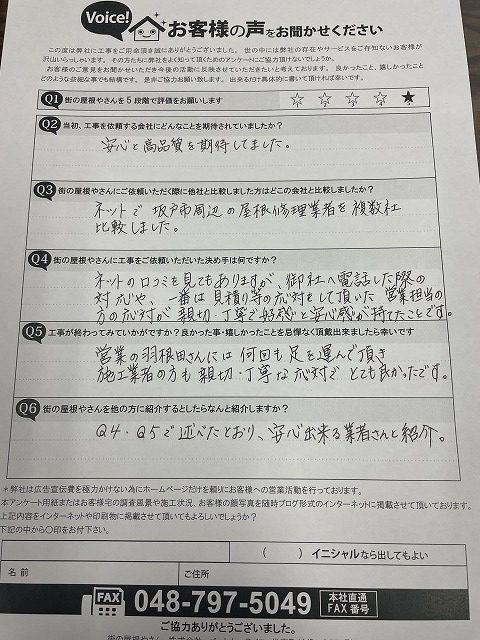 Voice! お客様の声をお聞かせください
この度は弊社に工事をご用命頂き誠にありがとうございました。世の中には弊社の存在やサービスをご存知ないお客様が
沢山いらっしゃいます。その方たちに弊社をよく知って頂くためのアンケートにご協力頂けないでしょうか。
お客様のご意見をお聞かせいただき今後の活動に反映させていただきたいと考えております。良かったこと、嬉しかったこと
どのような些細な事でも結構です。是非ご協力お願い致します。出来るだけ具体的に書いて頂ければ幸いです。
Q1 街の屋根やさんを5段階で評価をお願いします ☆ ☆ ☆ ☆ ★
Q2 当初、工事を依頼する会社にどんなことを期待されていましたか?
安心と高品質を期待してました。
Q3 街の屋根やさんにご依頼いただく際に他社と比較しました方はどこの会社と比較しましたか?
ネットで坂戸市周辺の屋根修理業者を複数社
比較しました。
Q4 街の屋根やさんに工事をご依頼いただいた決め手は何ですか?
ネットの口コミを見てもありますが、御社へ電話した際の
対応や、一番は見積り等の応対をして頂いた営業担当の
方の応対が親切・丁寧で好感と安心感が持てたことです。
Q5 工事が終わってみていかがですか?良かった事・嬉しかったことを忌憚なく頂戴出来ましたら幸いです
営業の羽根田さんには何回も足を運んで頂き
施工業者の方も親切・丁寧な応対でとても良かったです。
Q6 街の屋根やさんを他の方に紹介するとしたらなんと紹介しますか?
Q4・Q5で述べたとおり、安心出来る業者さんと紹介。
*弊社は広告宣伝費を極力かけない為にホームページだけを頼りにお客様への営業活動を行っております。
本アンケート用紙またはお客様宅の調査風景や施工状況、お客様の顔写真を随時ブログ形式のインターネットに掲載させて頂いております。
上記内容をインターネットや印刷物に掲載させて頂いてもよろしいでしょうか?
下記の中から〇印をお付下さい。
( ) イニシャルなら出してもよい
名前 ご住所
FAX 048-797-5049 本社直通 FAX番号
ご協力ありがとうございました。